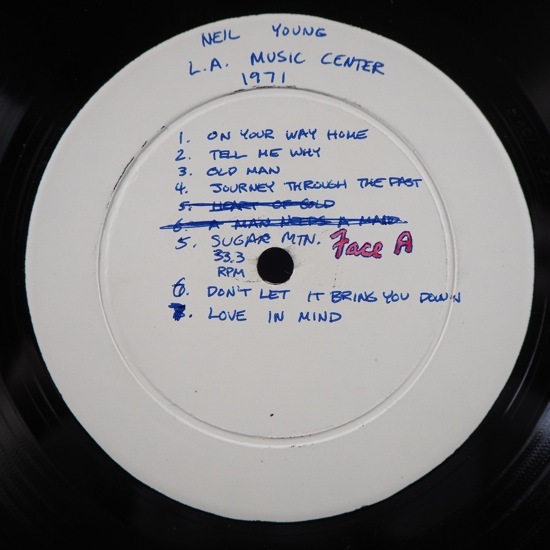 NEIL YOUNG
L.A. MUSIC CENTER
1971
1. ON YOUR WAY HOME
2. TELL ME WHY
3. OLD MAN
4. JOURNEY THROUGH THE PAST
5. HEART OF GOLD
6. A MAN NEEDS A MAID
5. SUGAR MTN.
Face A
33.3
RPM
6. DON'T LET IT BRING YOU DOWN
7. LOVE IN MIND